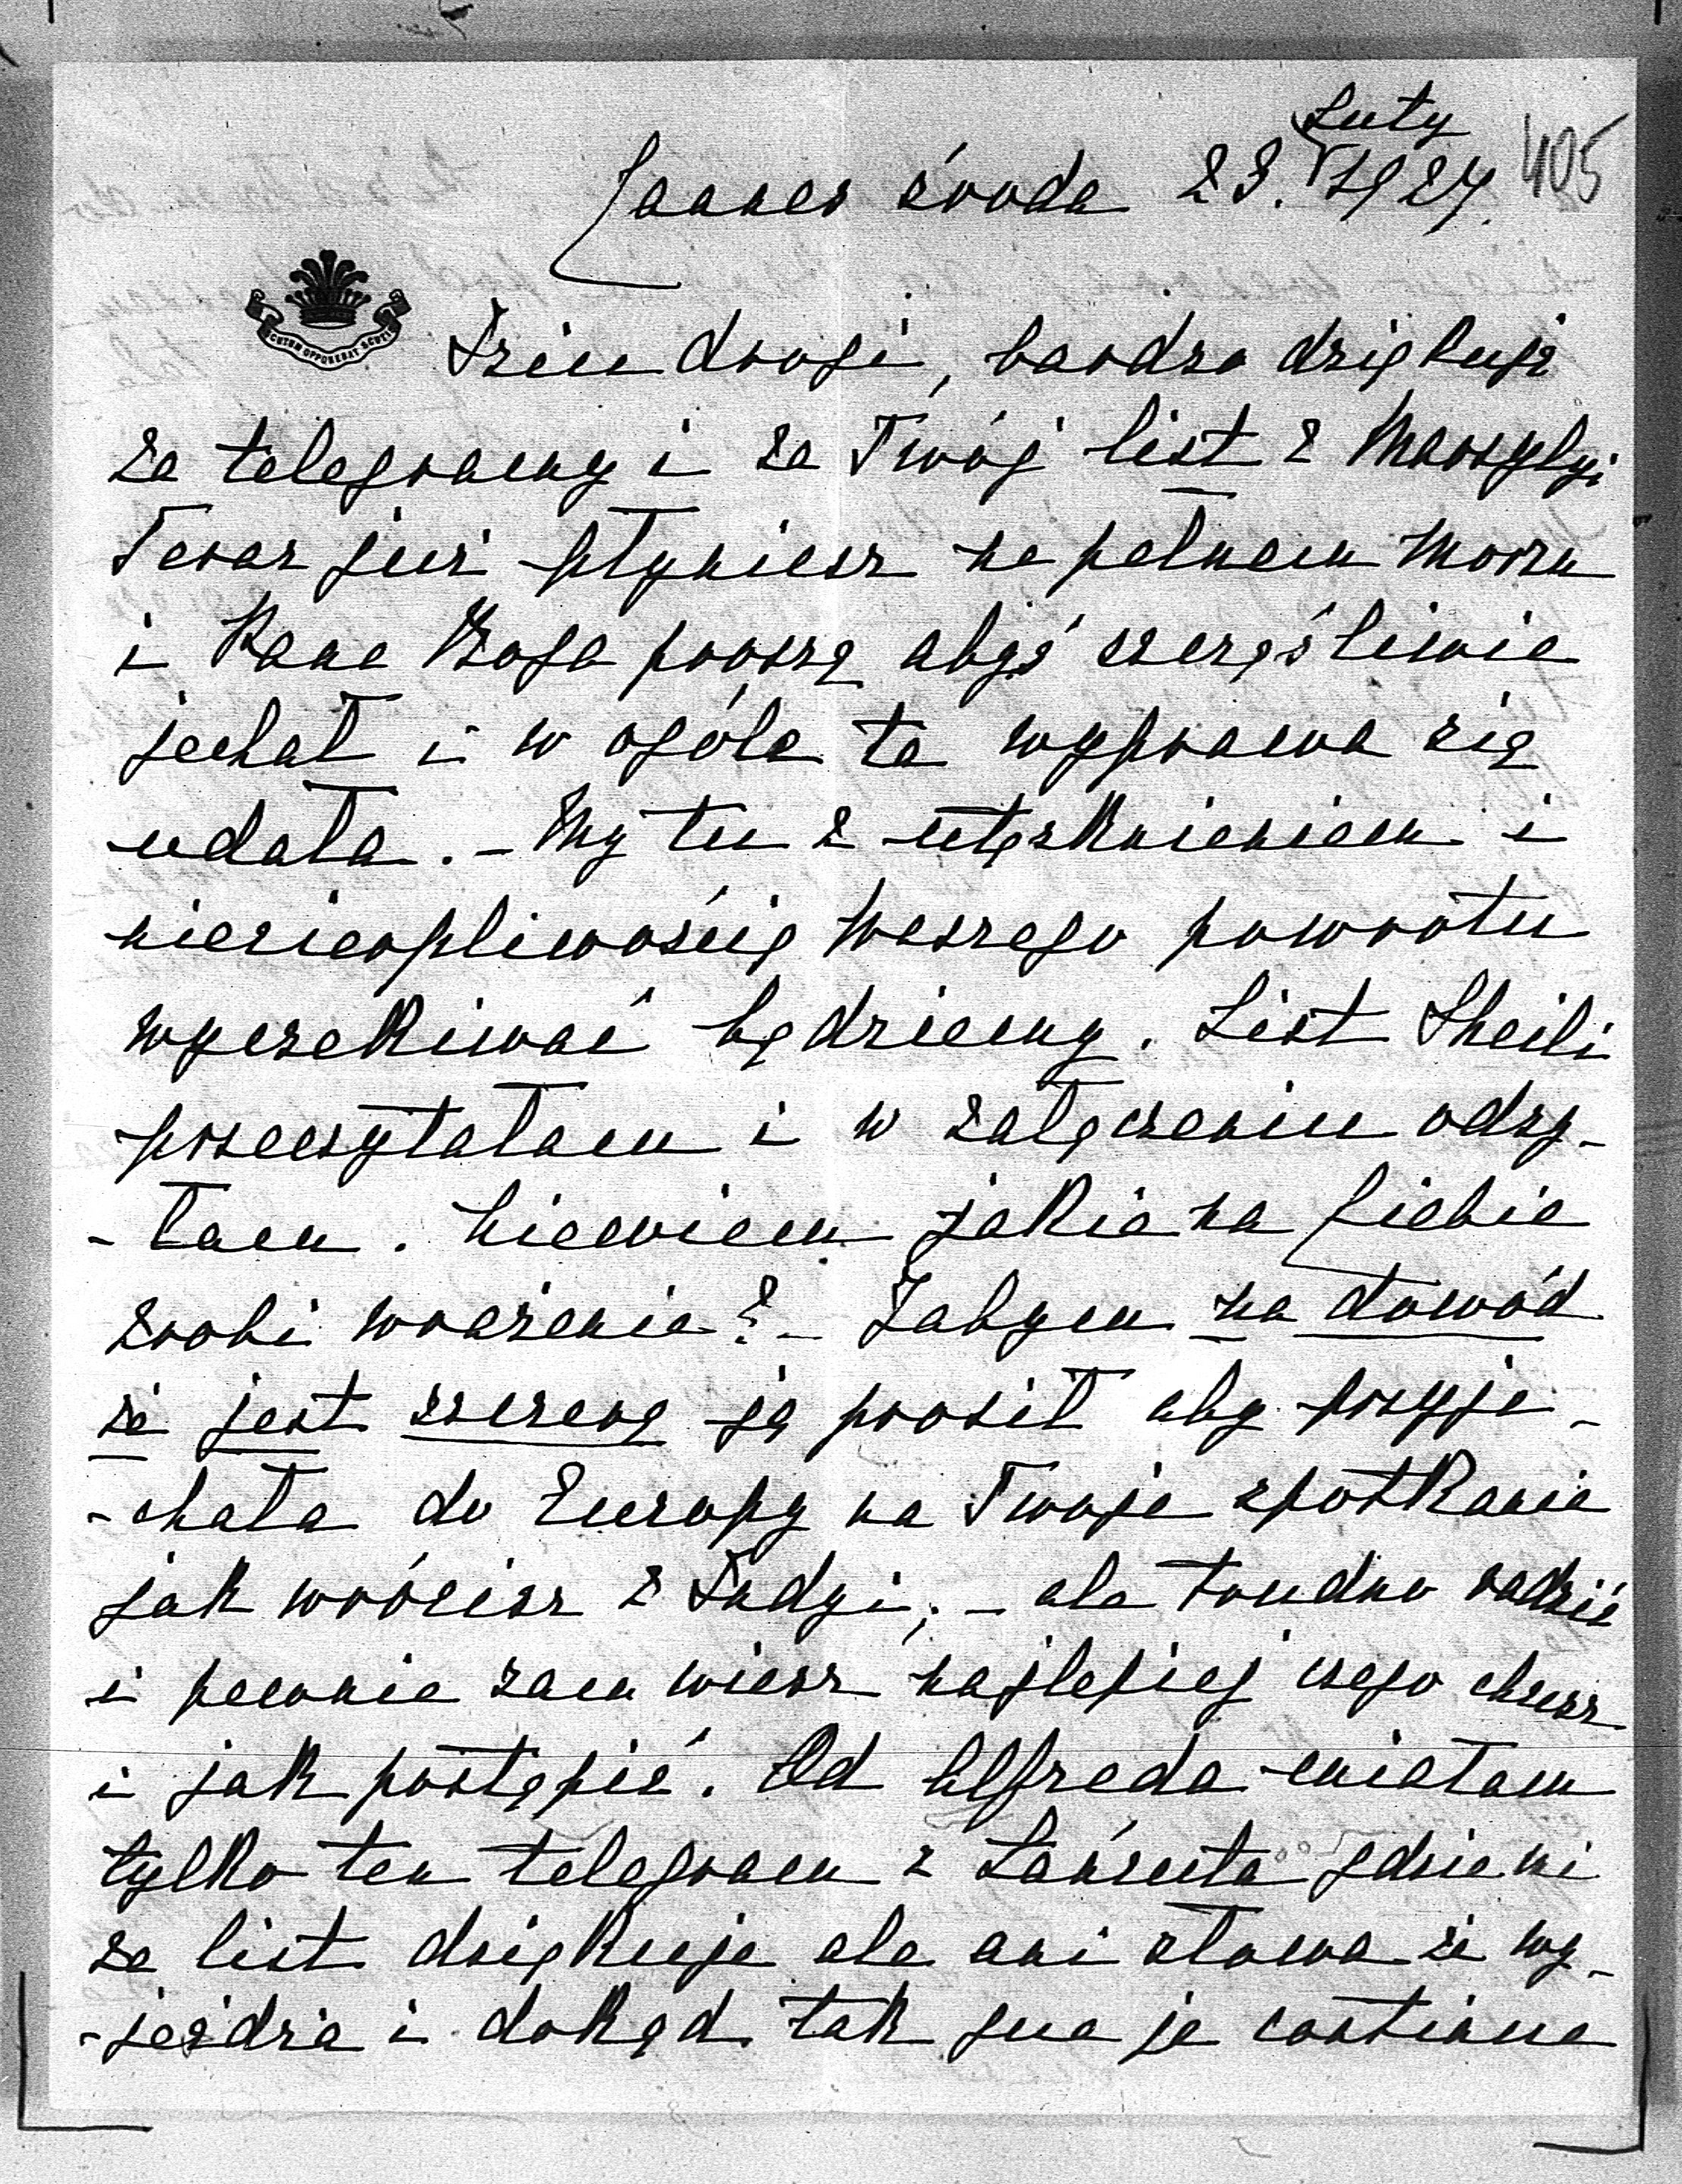 Luty
405
Cannes środa 23. 1927.
PECTUM OPPONERAT SCUTI
Dziu drogi, bardzo dziękuję
za telegramy i za Twój list z Marsylyi
Teraz już płyniesz na pełnem morzu
i Pana Boga proszę abyś szczęśliwie
jechał i w ogóle ta wyprawa się
udała. - My tu z utęsknieniem i
niecierpliwością Waszego powrotu
wyczekiwać będziemy. List Sheili
przeczytałam i w załączeniu odsy-
- łam. Niewiem jakie na Ciebie
zrobi wrażenie? - Jabym na dowód
że jest szczerą ją prosił aby przyje-
- chała do Europy na Twoje spotkanie
jak wrócisz z Indyi; - ale trudno radzić
i pewnie sam wiesz najlepiej czego chcesz
i jak postąpić. Od Alfreda miałam
tylko ten telegram z Łańcuta gdzie mi
za list dziękuje ale ani słowa że wy-
- jeżdża i dokąd. tak que je continue